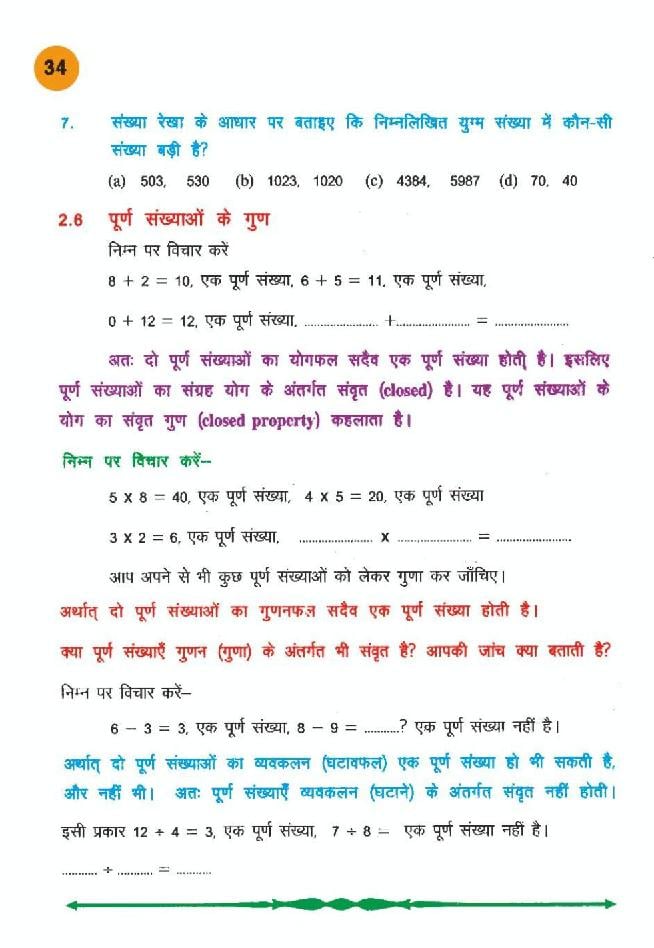 34
7. संख्या रेखा के आधार पर बताइए कि निम्नलिखित युग्म संख्या में कौन-सी
संख्या बड़ी है?
(a) 503, 530 (b) 1023, 1020 (c) 4384, 5987 (d) 70, 40
2.6 पूर्ण संख्याओं के गुण
निम्न पर विचार करें
8 + 2 = 10, एक पूर्ण संख्या, 6 + 5 = 11, एक पूर्ण संख्या,
0 + 12 = 12, एक पूर्ण संख्या, ..................... +..................... = .....................
अतः दो पूर्ण संख्याओं का योगफल सदैव एक पूर्ण संख्या होती है। इसलिए
पूर्ण संख्याओं का संग्रह योग के अंतर्गत संवृत (closed) है। यह पूर्ण संख्याओं के
योग का संवृत गुण (closed property) कहलाता है।
निम्न पर विचार करें--
5 x 8 = 40, एक पूर्ण संख्या, 4 x 5 = 20, एक पूर्ण संख्या
3 x 2 = 6, एक पूर्ण संख्या, ..................... x ..................... = .....................
आप अपने से भी कुछ पूर्ण संख्याओं को लेकर गुणा कर जाँचिए।
अर्थात् दो पूर्ण संख्याओं का गुणनफल सदैव एक पूर्ण संख्या होती है।
क्या पूर्ण संख्याएँ गुणन (गुणा) के अंतर्गत भी संवृत है? आपकी जांच क्या बताती है?
निम्न पर विचार करें–
6 – 3 = 3, एक पूर्ण संख्या, 8 – 9 = ..........? एक पूर्ण संख्या नहीं है।
अर्थात् दो पूर्ण संख्याओं का व्यवकलन (घटावफल) एक पूर्ण संख्या हो भी सकती है,
और नहीं भी। अतः पूर्ण संख्याएँ व्यवकलन (घटाने) के अंतर्गत संवृत नहीं होती।
इसी प्रकार 12 ÷ 4 = 3, एक पूर्ण संख्या, 7 ÷ 8 = एक पूर्ण संख्या नहीं है।
.......... ÷ .......... = ..........